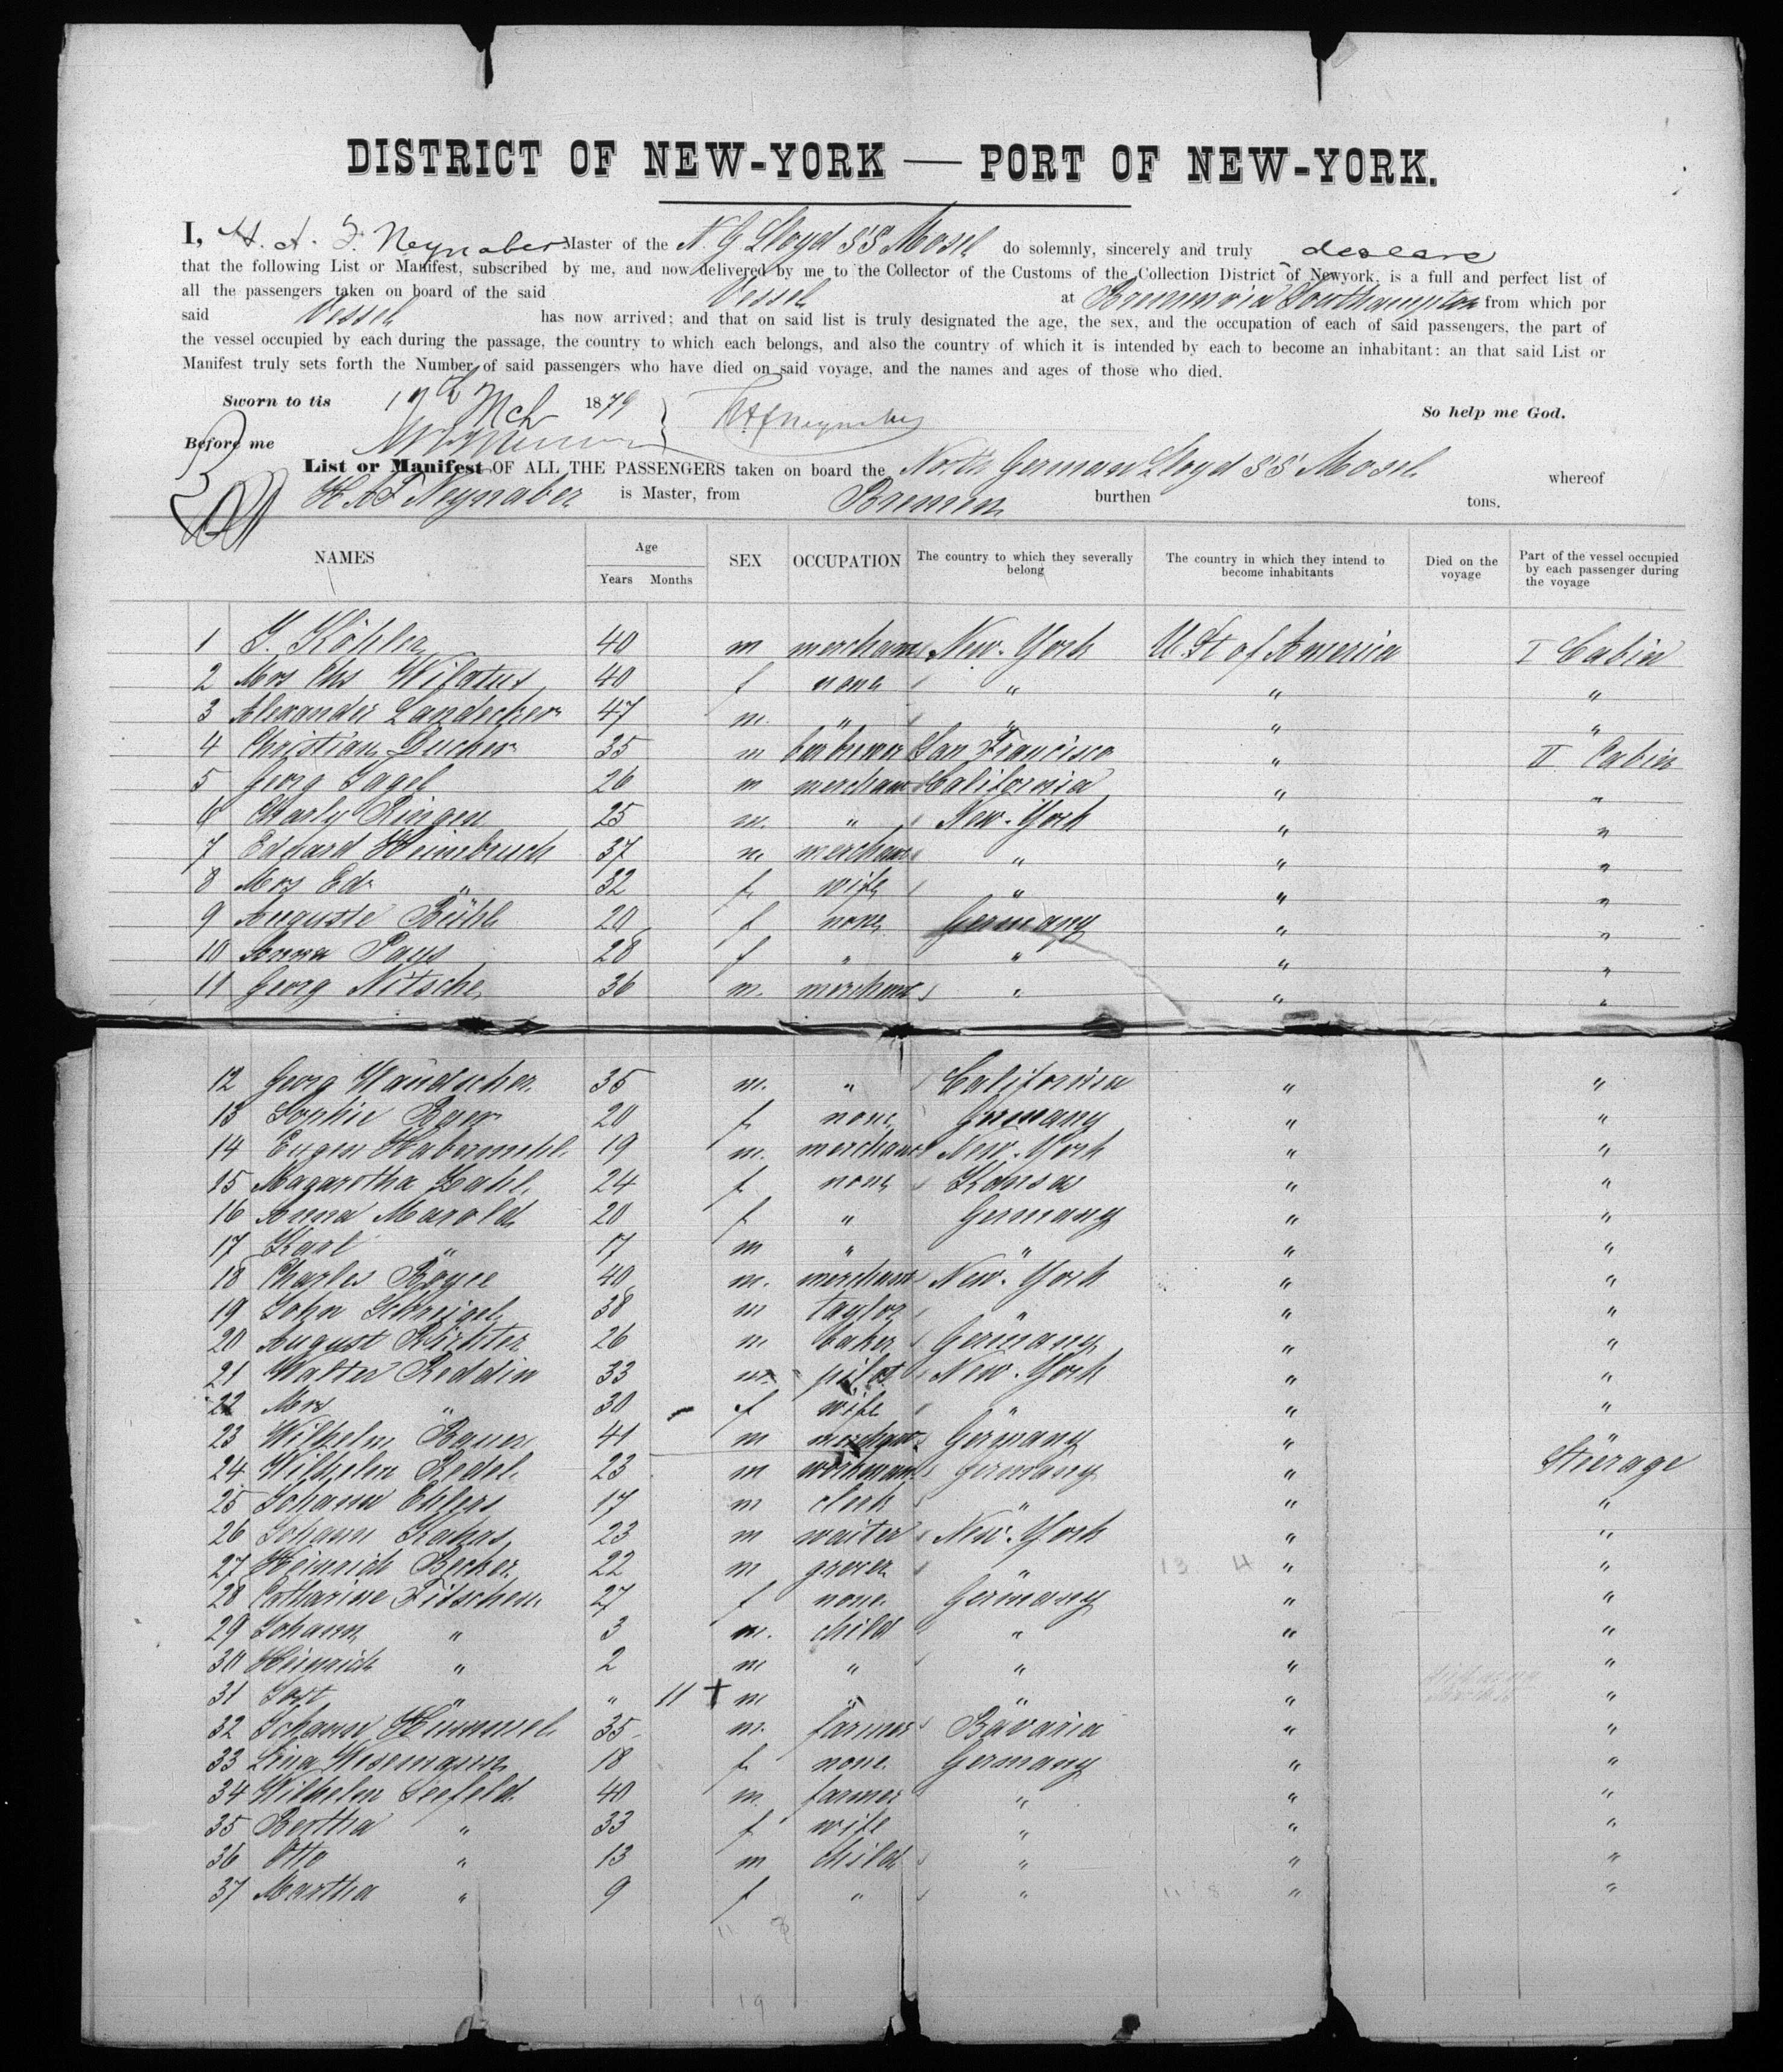 DISTRICT OF NEW-YORK — PORT OF NEW-YORK.
I, H. A. F. Neynaber Master of the N. G Lloyd SS Mosel do solemnly, sincerely and truly declare
that the following List or Manifest, subscribed by me, and now delivered by me to the Collector of the Customs of the Collection District of Newyork, is a full and perfect list of
all the passengers taken on board of the said Vessel at Bremen via Southampton from which por
said Vessel has now arrived; and that on said list is truly designated the age, the sex, and the occupation of each of said passengers, the part of
the vessel occupied by each during the passage, the country to which each belongs, and also the country of which it is intended by each to become an inhabitant: an that said List or
Manifest truly sets forth the Number of said passengers who have died on said voyage, and the names and ages of those who died.
Sworn to tis 17th Mch 1879 HAFNeynaber So help me God.
Before me
List or Manifest OF ALL THE PASSENGERS taken on board the North German Lloyd SS Mosel whereof
H A F Neynaber is Master, from Bremen burthen tons.
NAMES Age Years Months SEX OCCUPATION The country to which they severally belong The country in which they intend to become inhabitants Died on the voyage Part of the vessel occupied by each passenger during the voyage
1 Köhler 40 m merchant New-York U. St of America I Cabin
2 Mrs Chs 40 f none " " "
3 Alexander Landecker 47 m. " " " "
4 Christian 35 m San Francisco " II Cabin
5 Georg 26 m merchant California " "
6 Charly Ringen 25 m. " New-York " "
7 Eduard Heimbruch 37 m merchant " " "
8 Mrs Ed. " 32 f wife " " "
9 Auguste Bühl 20 f none Germany " "
10 Anna Paus 28 f " " " "
11 Georg Nitsche 36 m. merchant " " "
12 Georg 35 m. " California " "
13 Sophie 20 f none Germany " "
14 Eugen Habermehl 19 m. merchant New-York " "
15 Magaretha Zahl 24 f none Kansas " "
16 Anna Marold 20 f " Germany " "
17 Karl " 17 m " " " "
18 Charles Royce 40 m. merchant New-York " "
19 John 38 m taylor " " "
20 August Richter 26 m baker Germany " "
21 Walter Reddin 33 m pilot New-York " "
22 Mrs " 30 f wife " " "
23 Wilhelm Bauer 41 m merchant Germany "
24 Wilhelm Redel 23 m workman Germany " Stierage
25 Johann Ehlers 17 m clerk " " "
26 Johann Kahrs 23 m waiter New-York " "
27 Heinrich Becker 22 m grocer " 13 4 " "
28 Catharine Fitschen 27 f none Germany " "
29 Johann " 3 m. child " " "
30 Heinrich " 2 m " " " "
31 Jost " " 11 + m " " " "
32 Johann Hummel 35 m. farmer Bavaria " "
33 Lina Wesemann 18 f none Germany " "
34 Wilhelm Seefeld 40 m. farmer " " "
35 Bertha " 33 f wife " " "
36 Otto " 13 m child " " "
37 Martha " 9 f " " 11 8 " "
11 8
19